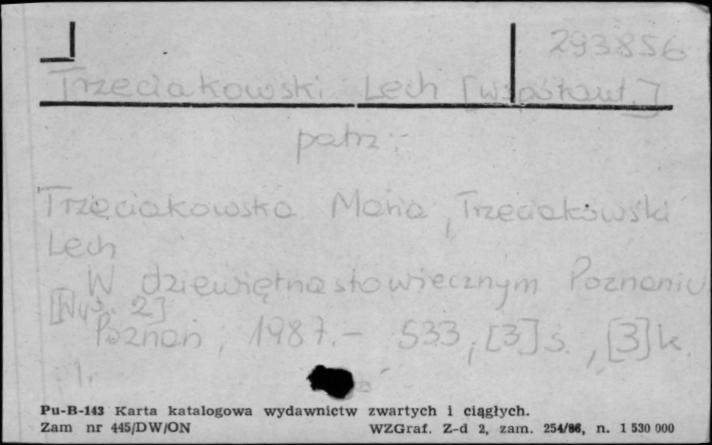 293856
Trzeciakowski Lech [współaut.]
patrz:
Trzeciakowska Maria, Trzeciakowski
Lech
W dziewiętnastowiecznym Poznaniu
[Wyd. 2]
Poznań, 1987.- 533, [3] s., [3] k.
1.
Pu-B-143 Karta katalogowa wydawnictw zwartych i ciągłych.
Zam nr 445/DW/ON WZGraf. Z-d 2, zam. 254/86, n. 1 530 000